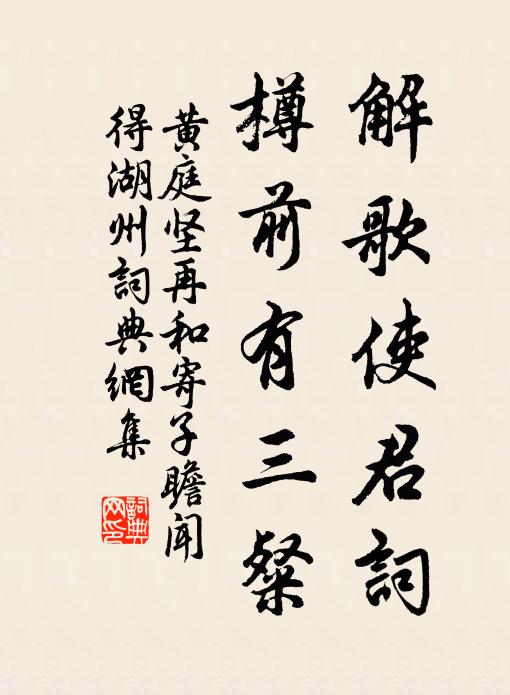 解歌使君詞
樽前有三粲
黄庭坚再和寄子瞻闻
得湖州詞典網集
詞典網印